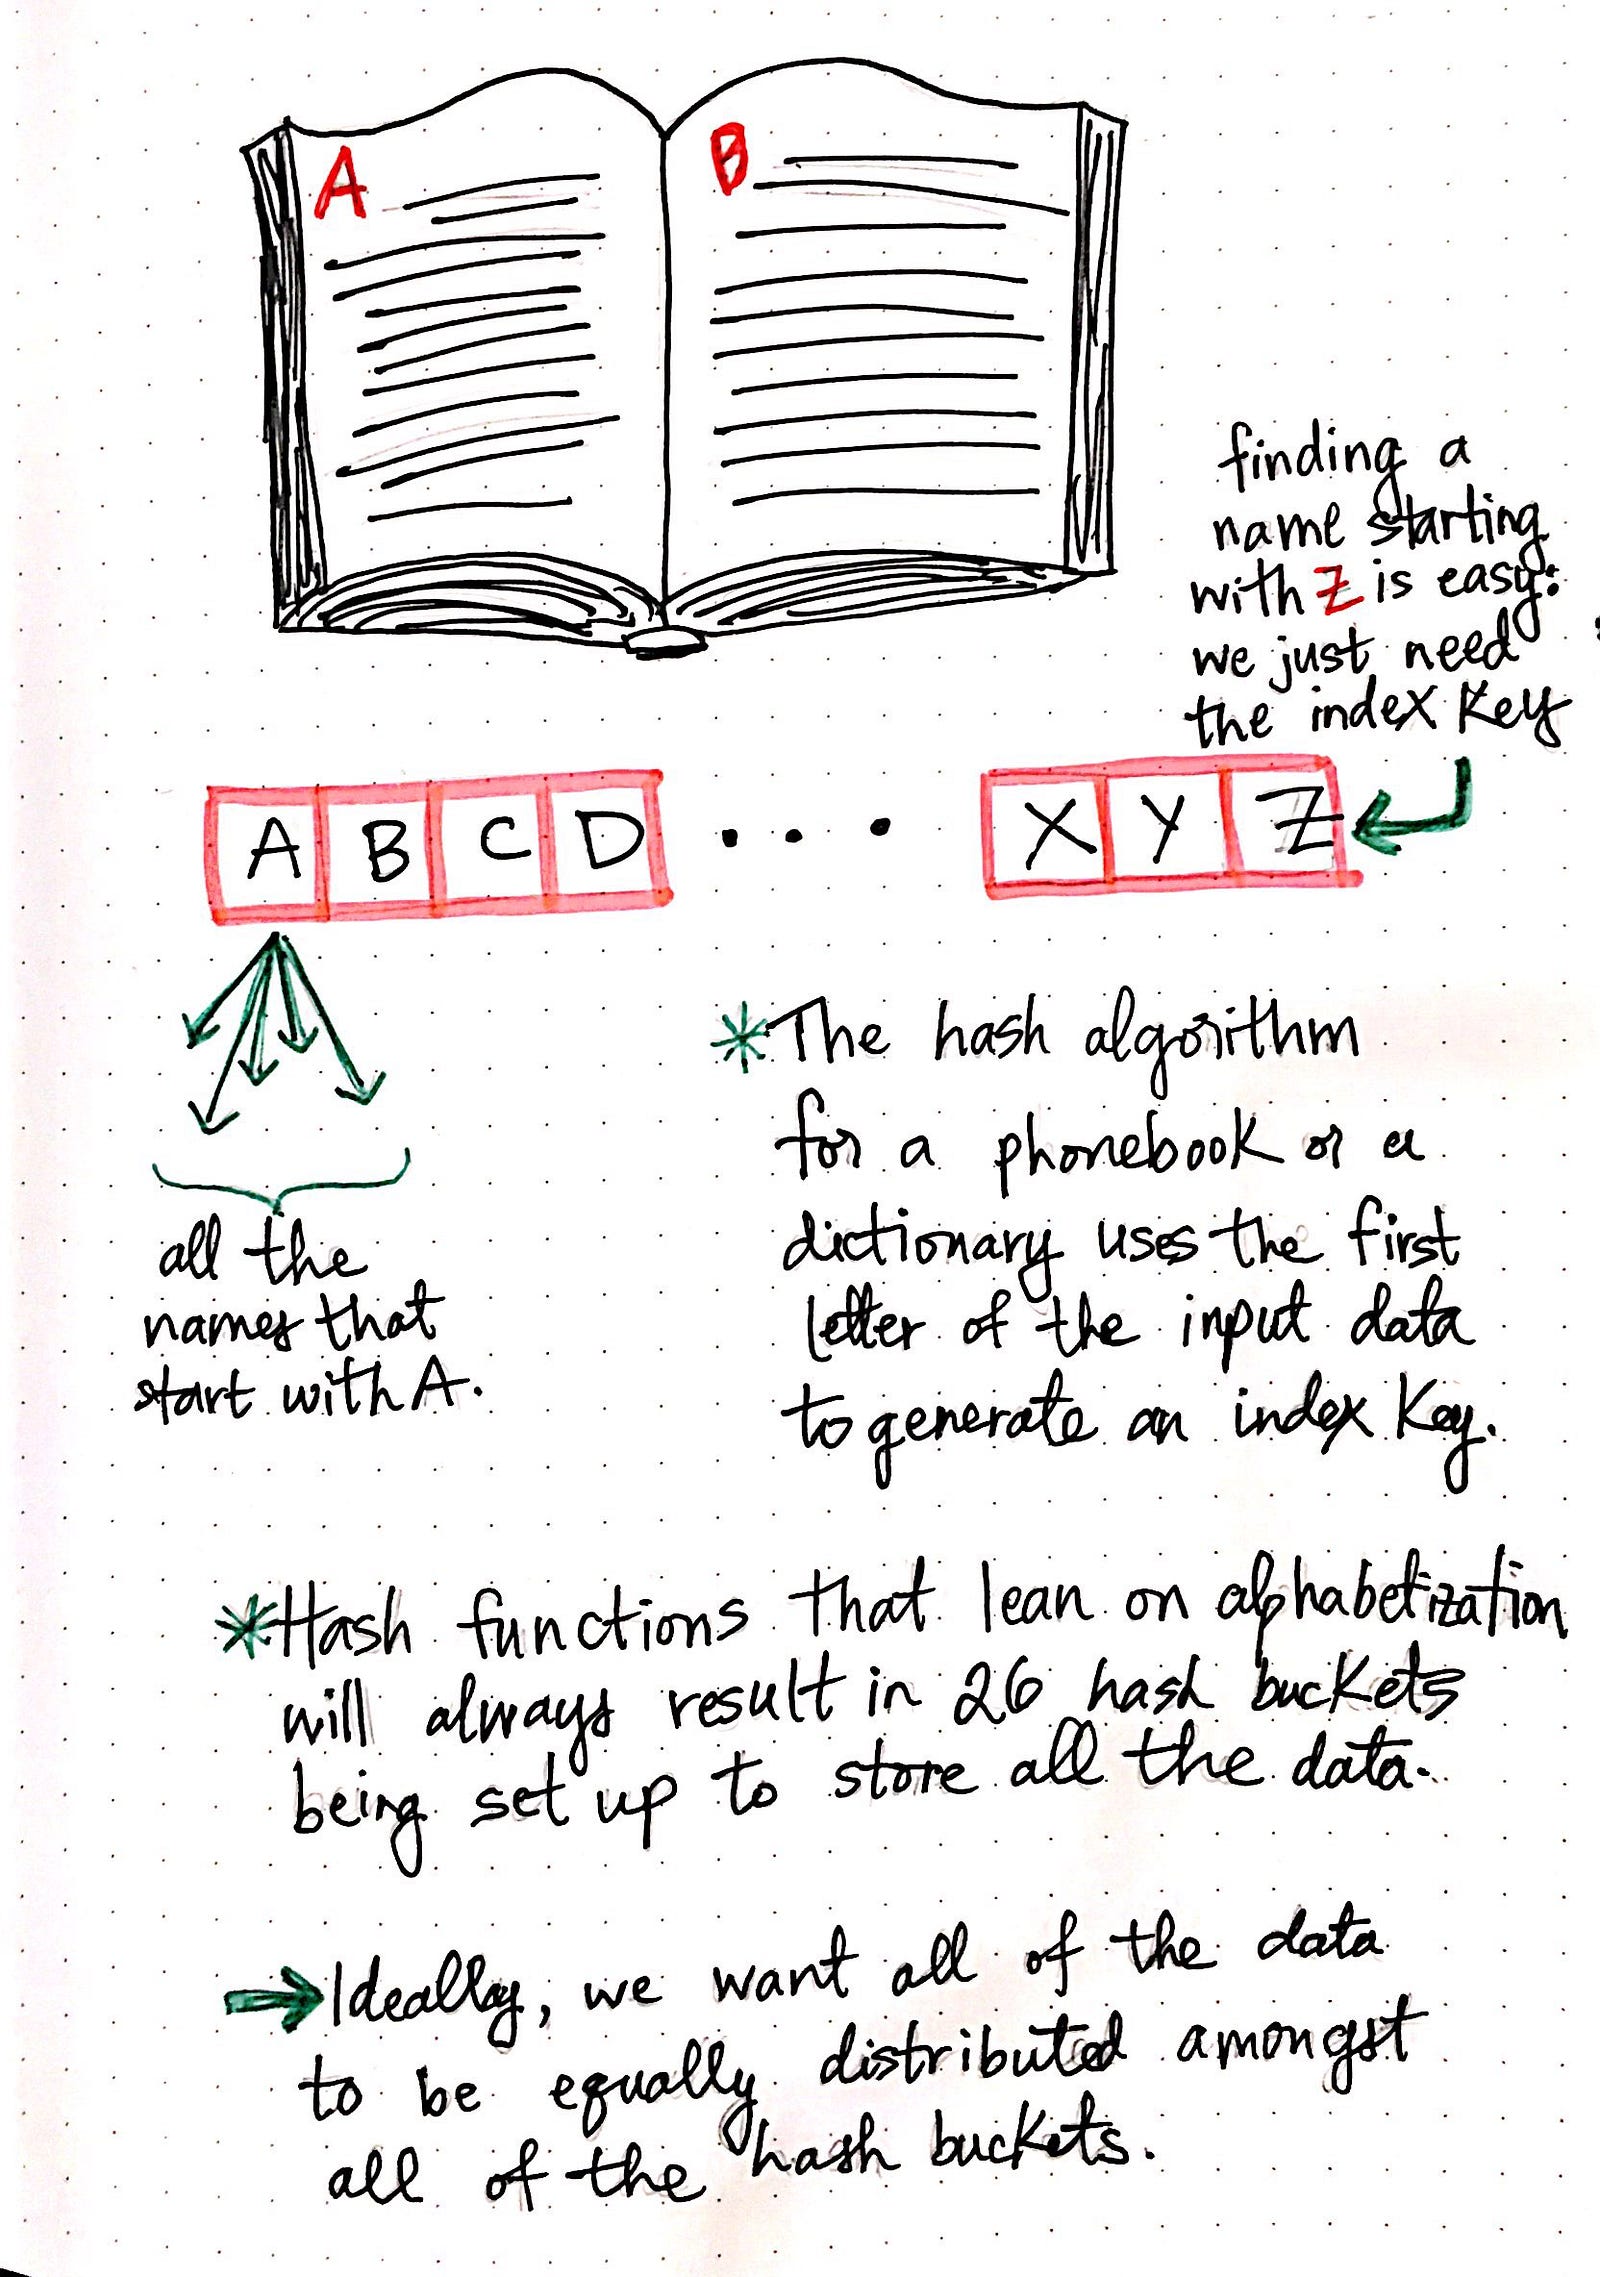 A
B
finding a
name starting
with Z is easy:
we just need
the index key
A B C D . . . X Y Z
all the
names that
start with A.
*The hash algorithm
for a phonebook or a
dictionary uses the first
letter of the input data
to generate an index key.
*Hash functions that lean on alphabetization
will always result in 26 hash buckets
being set up to store all the data.
→Ideally, we want all of the data
to be equally distributed amongst
all of the hash buckets.